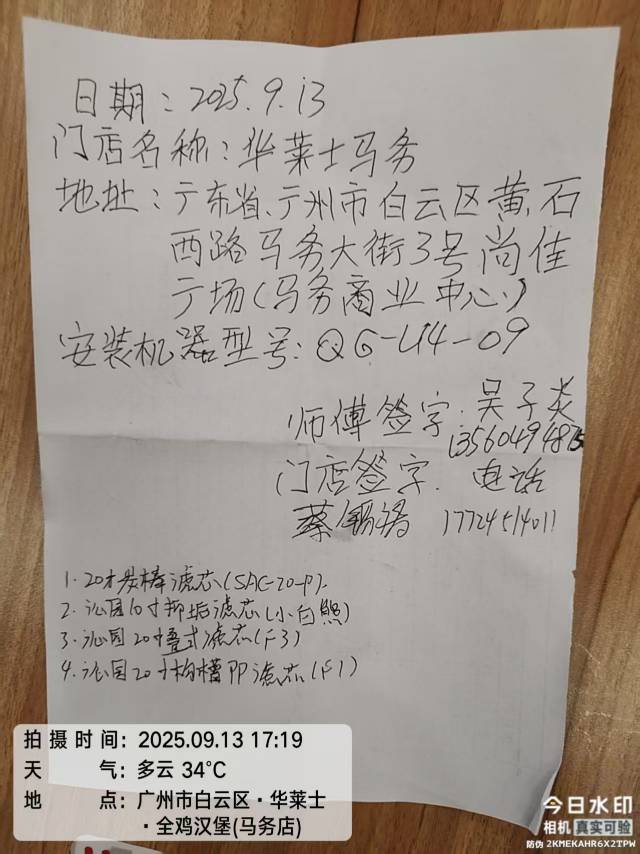 日期：2025.9.13
门店名称：华莱士马务
地址：广东省、广州市白云区黄石
西路马务大街3号尚佳
广场(马务商业中心)
安装机器型号：QG-U4-09
师傅签字.吴子炎
1356049487
门店签字. 电话
蔡 17724514011
1.20寸炭棒滤芯(SAC-20-P).
2.沁园10寸抑垢滤芯(小白熊)
3.沁园20寸叠式滤芯(F3)
4.沁园20寸沟槽PP滤芯(F1)
拍摄时间：2025.09.13 17:19
天 气：多云 34℃
地 点：广州市白云区·华莱士
·全鸡汉堡(马务店)
今日水印
相机 真实可验
防伪 2KMEKAHR6X2TPW